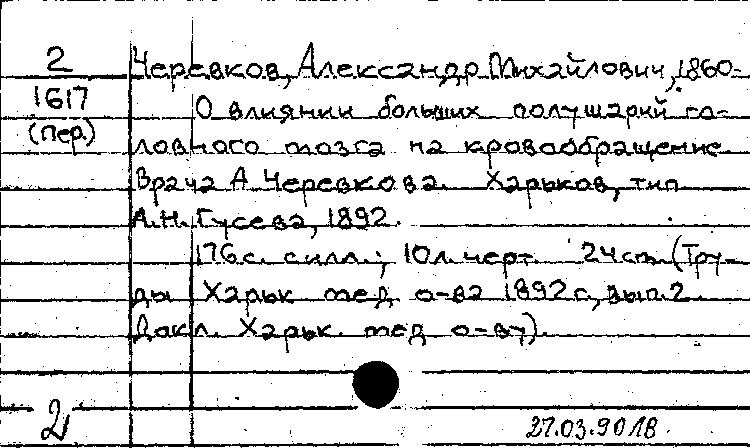 2 Черевков, Александр Михайлович, 1860-
1617 О влиянии больших полушарий го-
(пер.) ловного мозга на кровообращение
Врача А. Черевкова. Харьков, тип
А.Н. Гусева, 1892.
176 с. с илл.; 10 л. черт. 24 см. (Тру-
ды Харьк мед о-ва 1892 г., вып. 2.
Докл. Харьк. мед о-ву).
2 27.03.90 18.